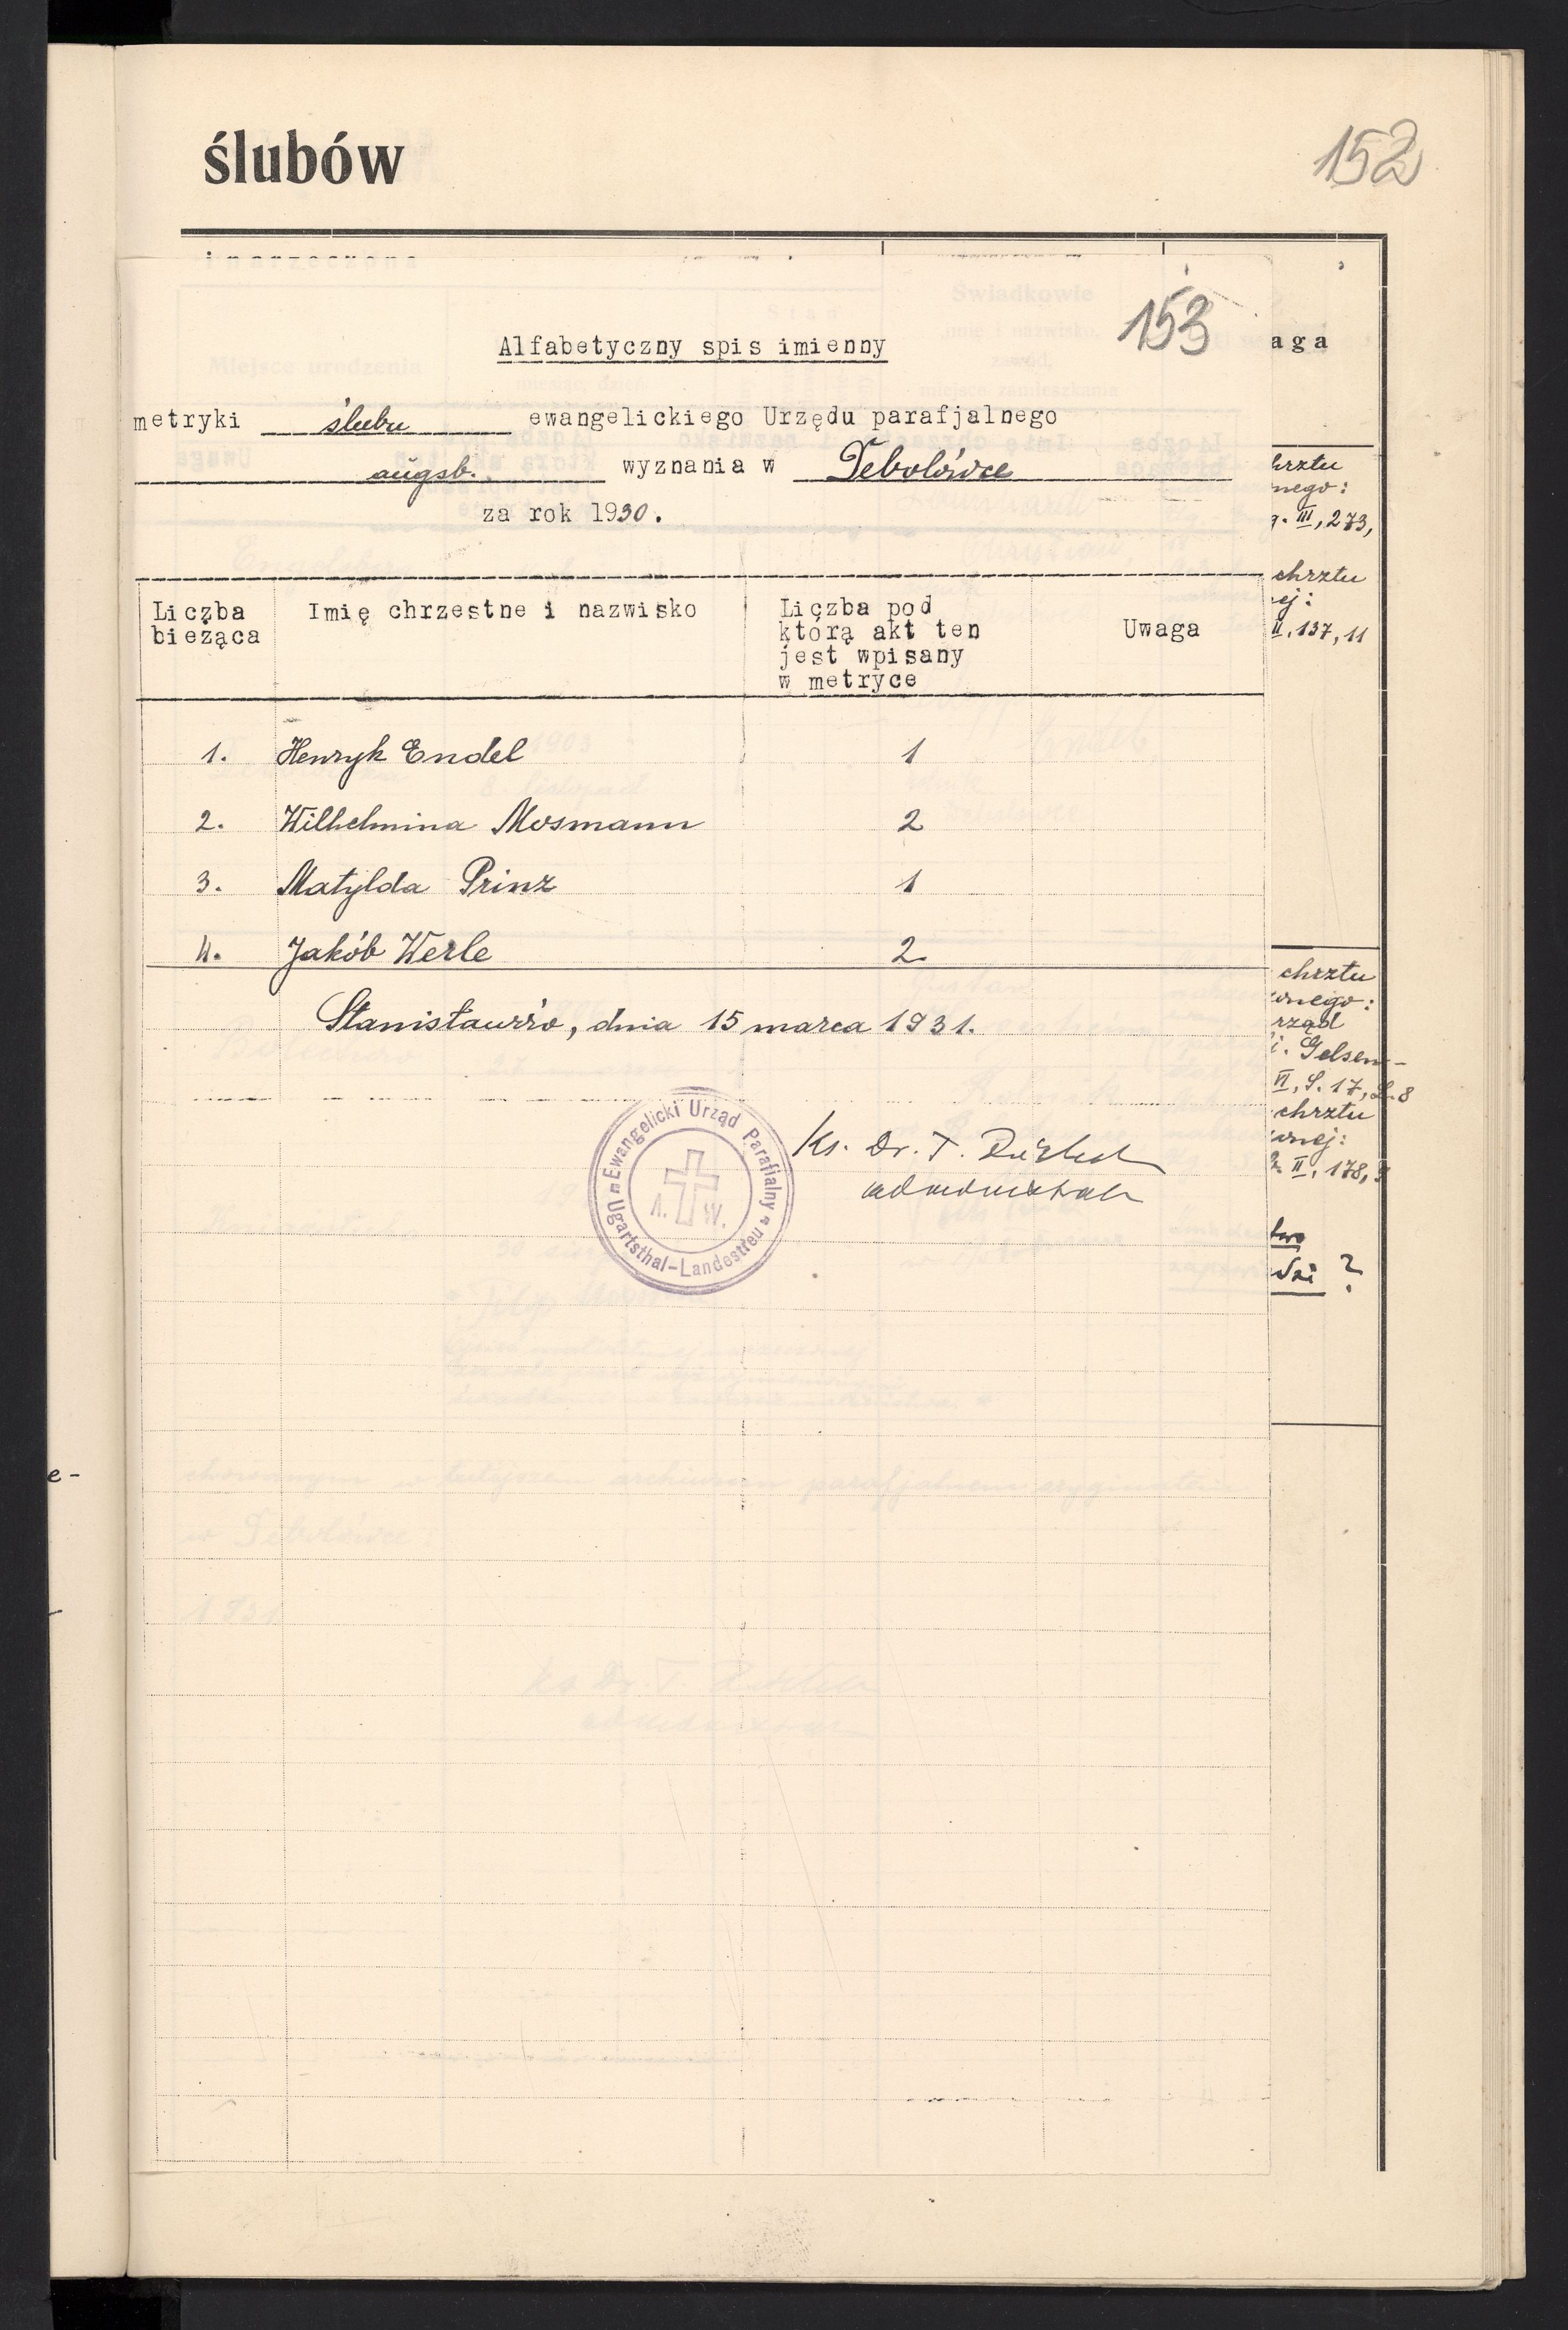 ślubów
152
153
Alfabetyczny spis imienny
aga
metryki ślubu ewangelickiego Urzędu parafjalnego
augsb. wyznania w Debolówce
za rok 1930.
hrztu
nego:
III, 273,
chrztu
ej:
II, 137, 11
Liczba bieżąca
Imię chrzestne i nazwisko
Liczba pod
którą akt ten
jest wpisany
w metryce
Uwaga
1. Henryk Endel 1
2. Wilhelmina Mosmann 2
3. Matylda Prinz 1
4. Jakób Werle 2
Stanisławów, dnia 15 marca 1931.
chrztu
nego:
rząd
i. Gelsen-
VI, S. 17, L. 8
chrztu
nej:
II, 178, 3
Ewangelicki Urząd Parafialny
Ugartsthal-Landestreu
A. W.
Ks. Dr. T.
administrator
?
e-